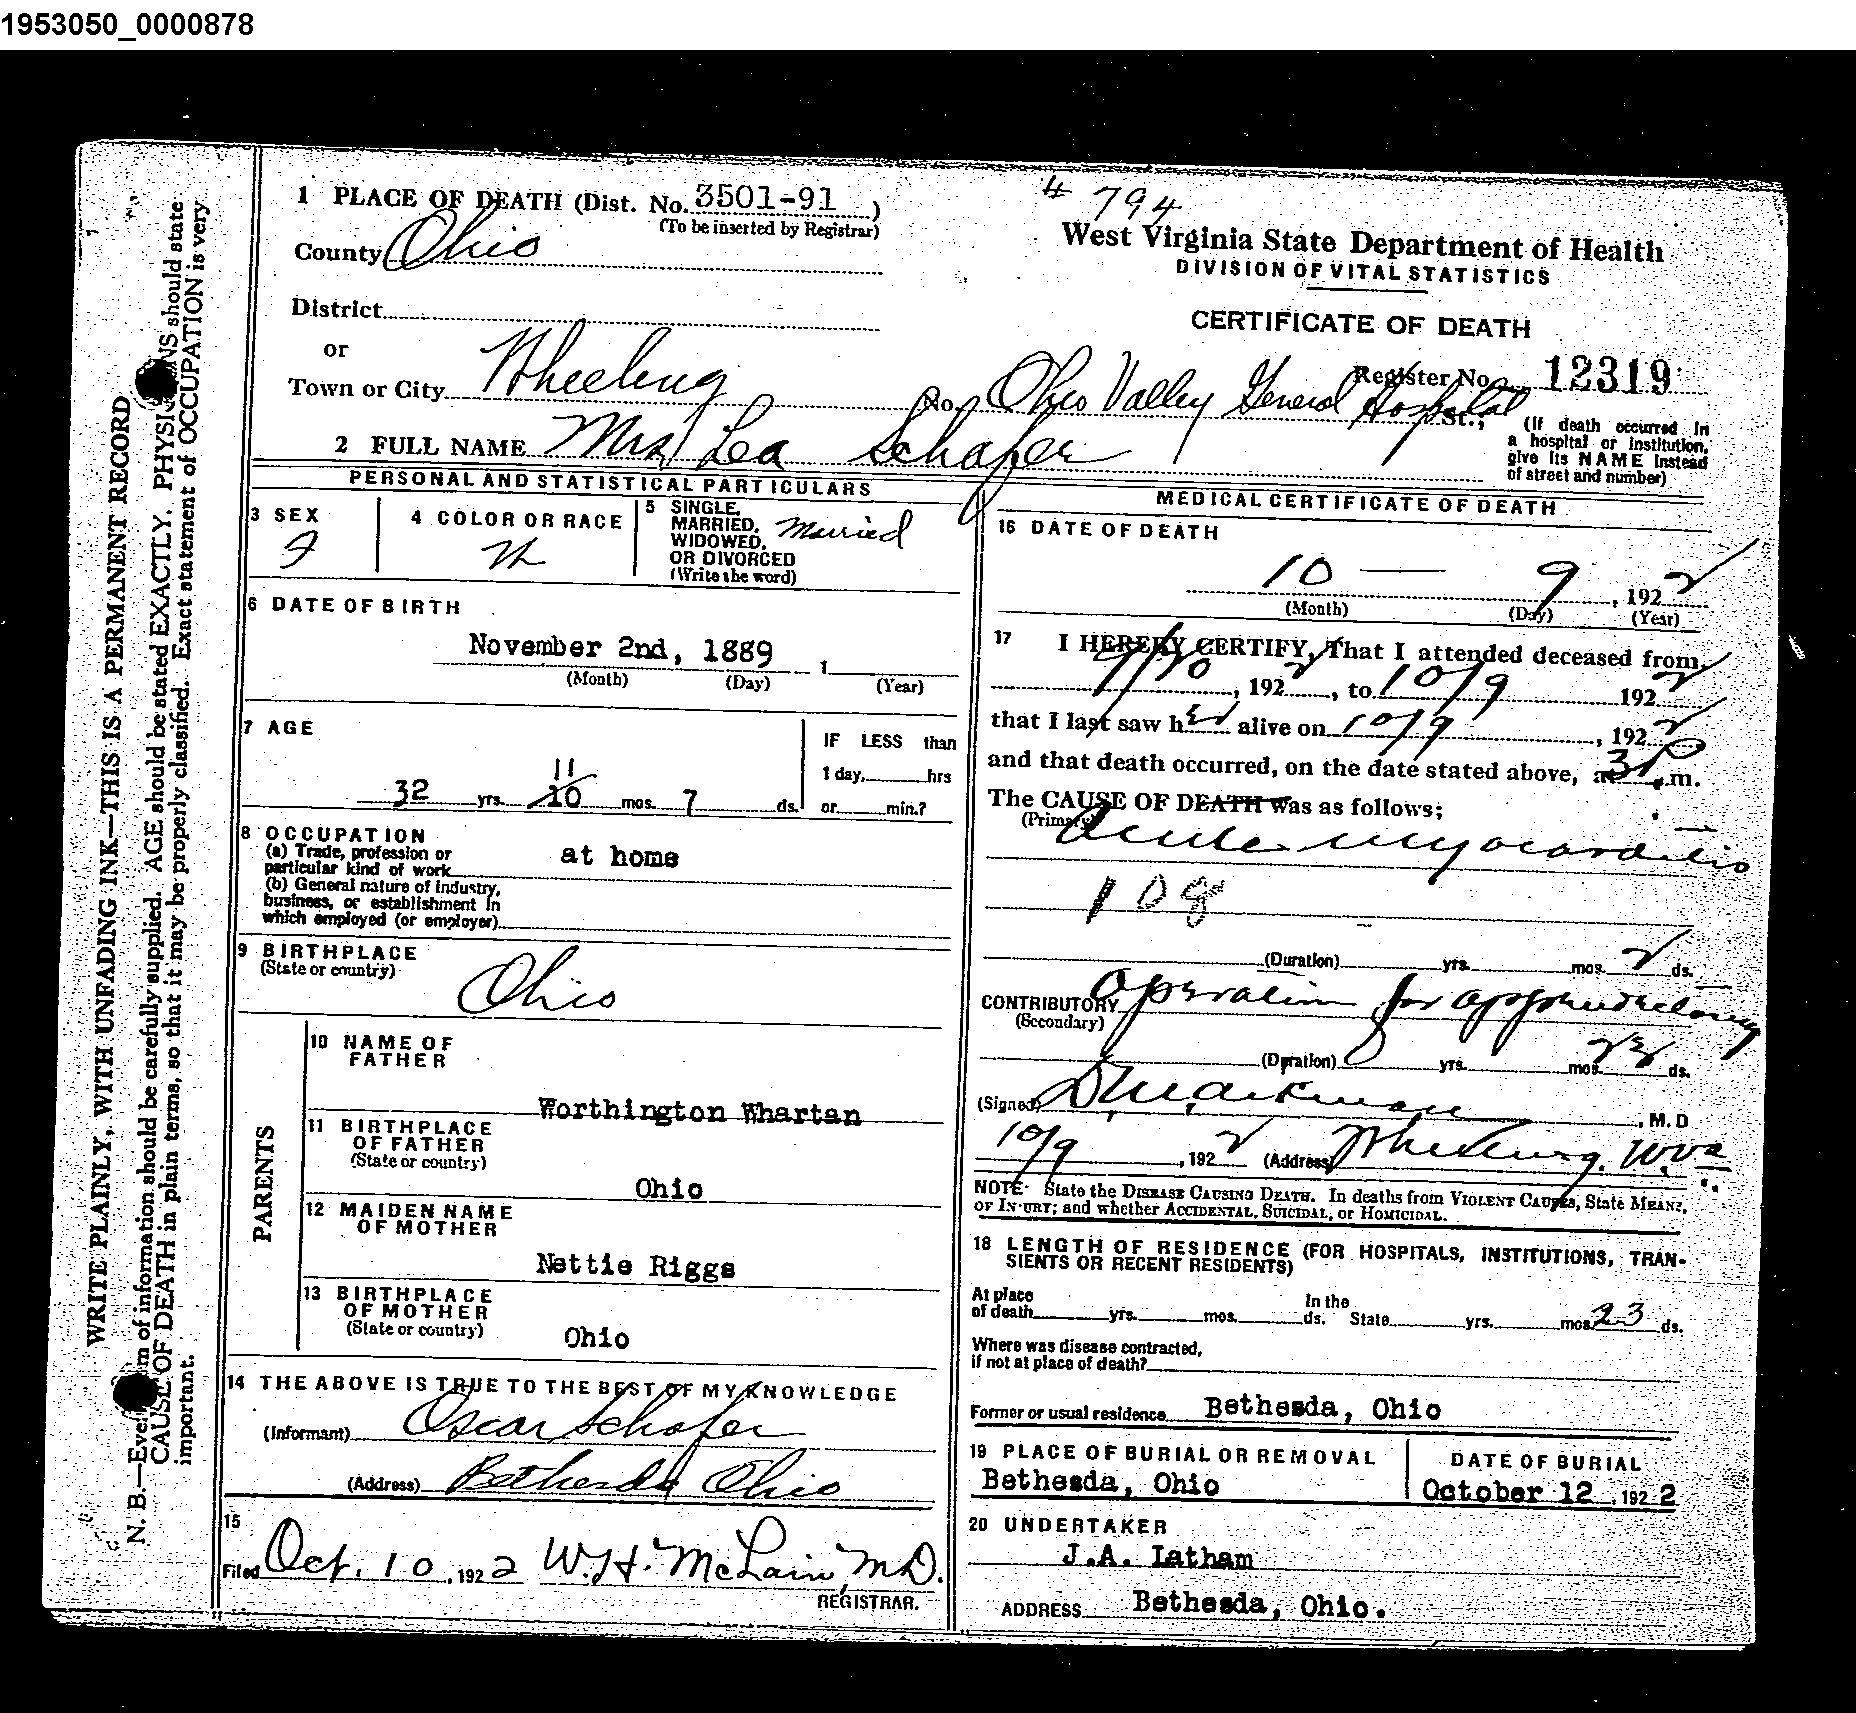 1953050_0000878
1 PLACE OF DEATH (Dist. No. 3501-91 )
(To be inserted by Registrar)
County Ohio
District
or
Town or City Wheeling
# 794
West Virginia State Department of Health
DIVISION OF VITAL STATISTICS
CERTIFICATE OF DEATH
Register No. 12319
No. Ohio Valley General Hospital St.,
(If death occurred in
a hospital or institution,
give its NAME instead
of street and number)
2 FULL NAME Mrs Lea Schafer
PERSONAL AND STATISTICAL PARTICULARS
3 SEX
F
4 COLOR OR RACE
W
5 SINGLE,
MARRIED,
WIDOWED,
OR DIVORCED
(Write the word)
Married
6 DATE OF BIRTH
November 2nd, 1889 1
(Month) (Day) (Year)
7 AGE
11
32 yrs. 10 mos. 7 ds.
IF LESS than
1 day, hrs
or min.?
8 OCCUPATION
(a) Trade, profession or
particular kind of work at home
(b) General nature of industry,
business, or establishment in
which employed (or employer)
9 BIRTHPLACE
(State or country)
Ohio
PARENTS
10 NAME OF
FATHER
Worthington Whartan
11 BIRTHPLACE
OF FATHER
(State or country)
Ohio
12 MAIDEN NAME
OF MOTHER
Nettie Riggs
13 BIRTHPLACE
OF MOTHER
(State or country)
Ohio
14 THE ABOVE IS TRUE TO THE BEST OF MY KNOWLEDGE
(Informant) Oscar Schafer
(Address) Bethesda Ohio
15
Filed Oct. 10, 1922 W.H. McLain, M.D.
REGISTRAR.
MEDICAL CERTIFICATE OF DEATH
16 DATE OF DEATH
10 — 9, 1922
(Month) (Day) (Year)
17 I HEREBY CERTIFY, That I attended deceased from
9/10, 1922, to 10/9 1922
that I last saw her alive on 10/9, 1922
and that death occurred, on the date stated above, at 3 P.m.
The CAUSE OF DEATH was as follows;
(Primary) Acute myocarditis
108
(Duration) yrs. mos. 2 ds.
CONTRIBUTORY Operation for
(Secondary)
(Duration) yrs. mos. ds.
(Signed) , M.D
10/9, 1922 (Address) Wheeling, W.Va
NOTE: State the DISEASE CAUSING DEATH. In deaths from VIOLENT CAUSES, State MEANS
OF INJURY; and whether ACCIDENTAL, SUICIDAL, or HOMICIDAL.
18 LENGTH OF RESIDENCE (FOR HOSPITALS, INSTITUTIONS, TRAN-
SIENTS OR RECENT RESIDENTS)
At place
of death yrs. mos. ds.
In the
State yrs. mos. 23 ds.
Where was disease contracted,
if not at place of death?
Former or usual residence Bethesda, Ohio
19 PLACE OF BURIAL OR REMOVAL
Bethesda, Ohio
DATE OF BURIAL
October 12, 1922
20 UNDERTAKER
J.A. Latham
ADDRESS Bethesda, Ohio.
WRITE PLAINLY, WITH UNFADING INK—THIS IS A PERMANENT RECORD
N. B.—Every item of information should be carefully supplied. AGE should be stated EXACTLY. PHYSICIANS should state
CAUSE OF DEATH in plain terms, so that it may be properly classified. Exact statement of OCCUPATION is very
important.